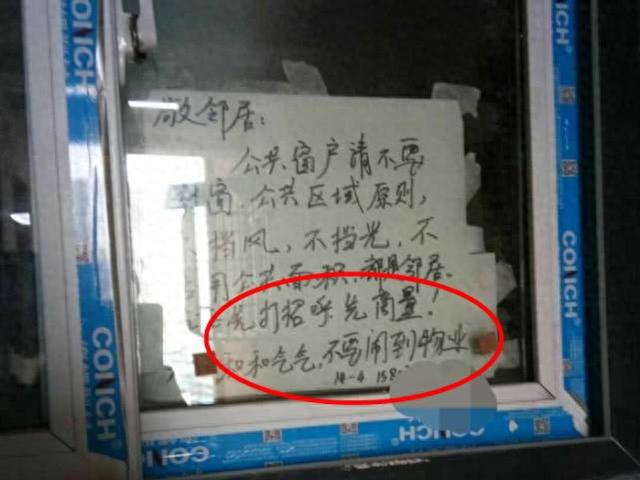 CONCH
CONCH
CONCH
尚邻居:
公共窗户请不要
封窗,公共区域原则,
挡风,不挡光,不
用公共面积,都是邻居。
先打招呼先商量,
和和气气,不要闹到物业
14-4 158
CONCH
CONCH
CONCH
CONCH